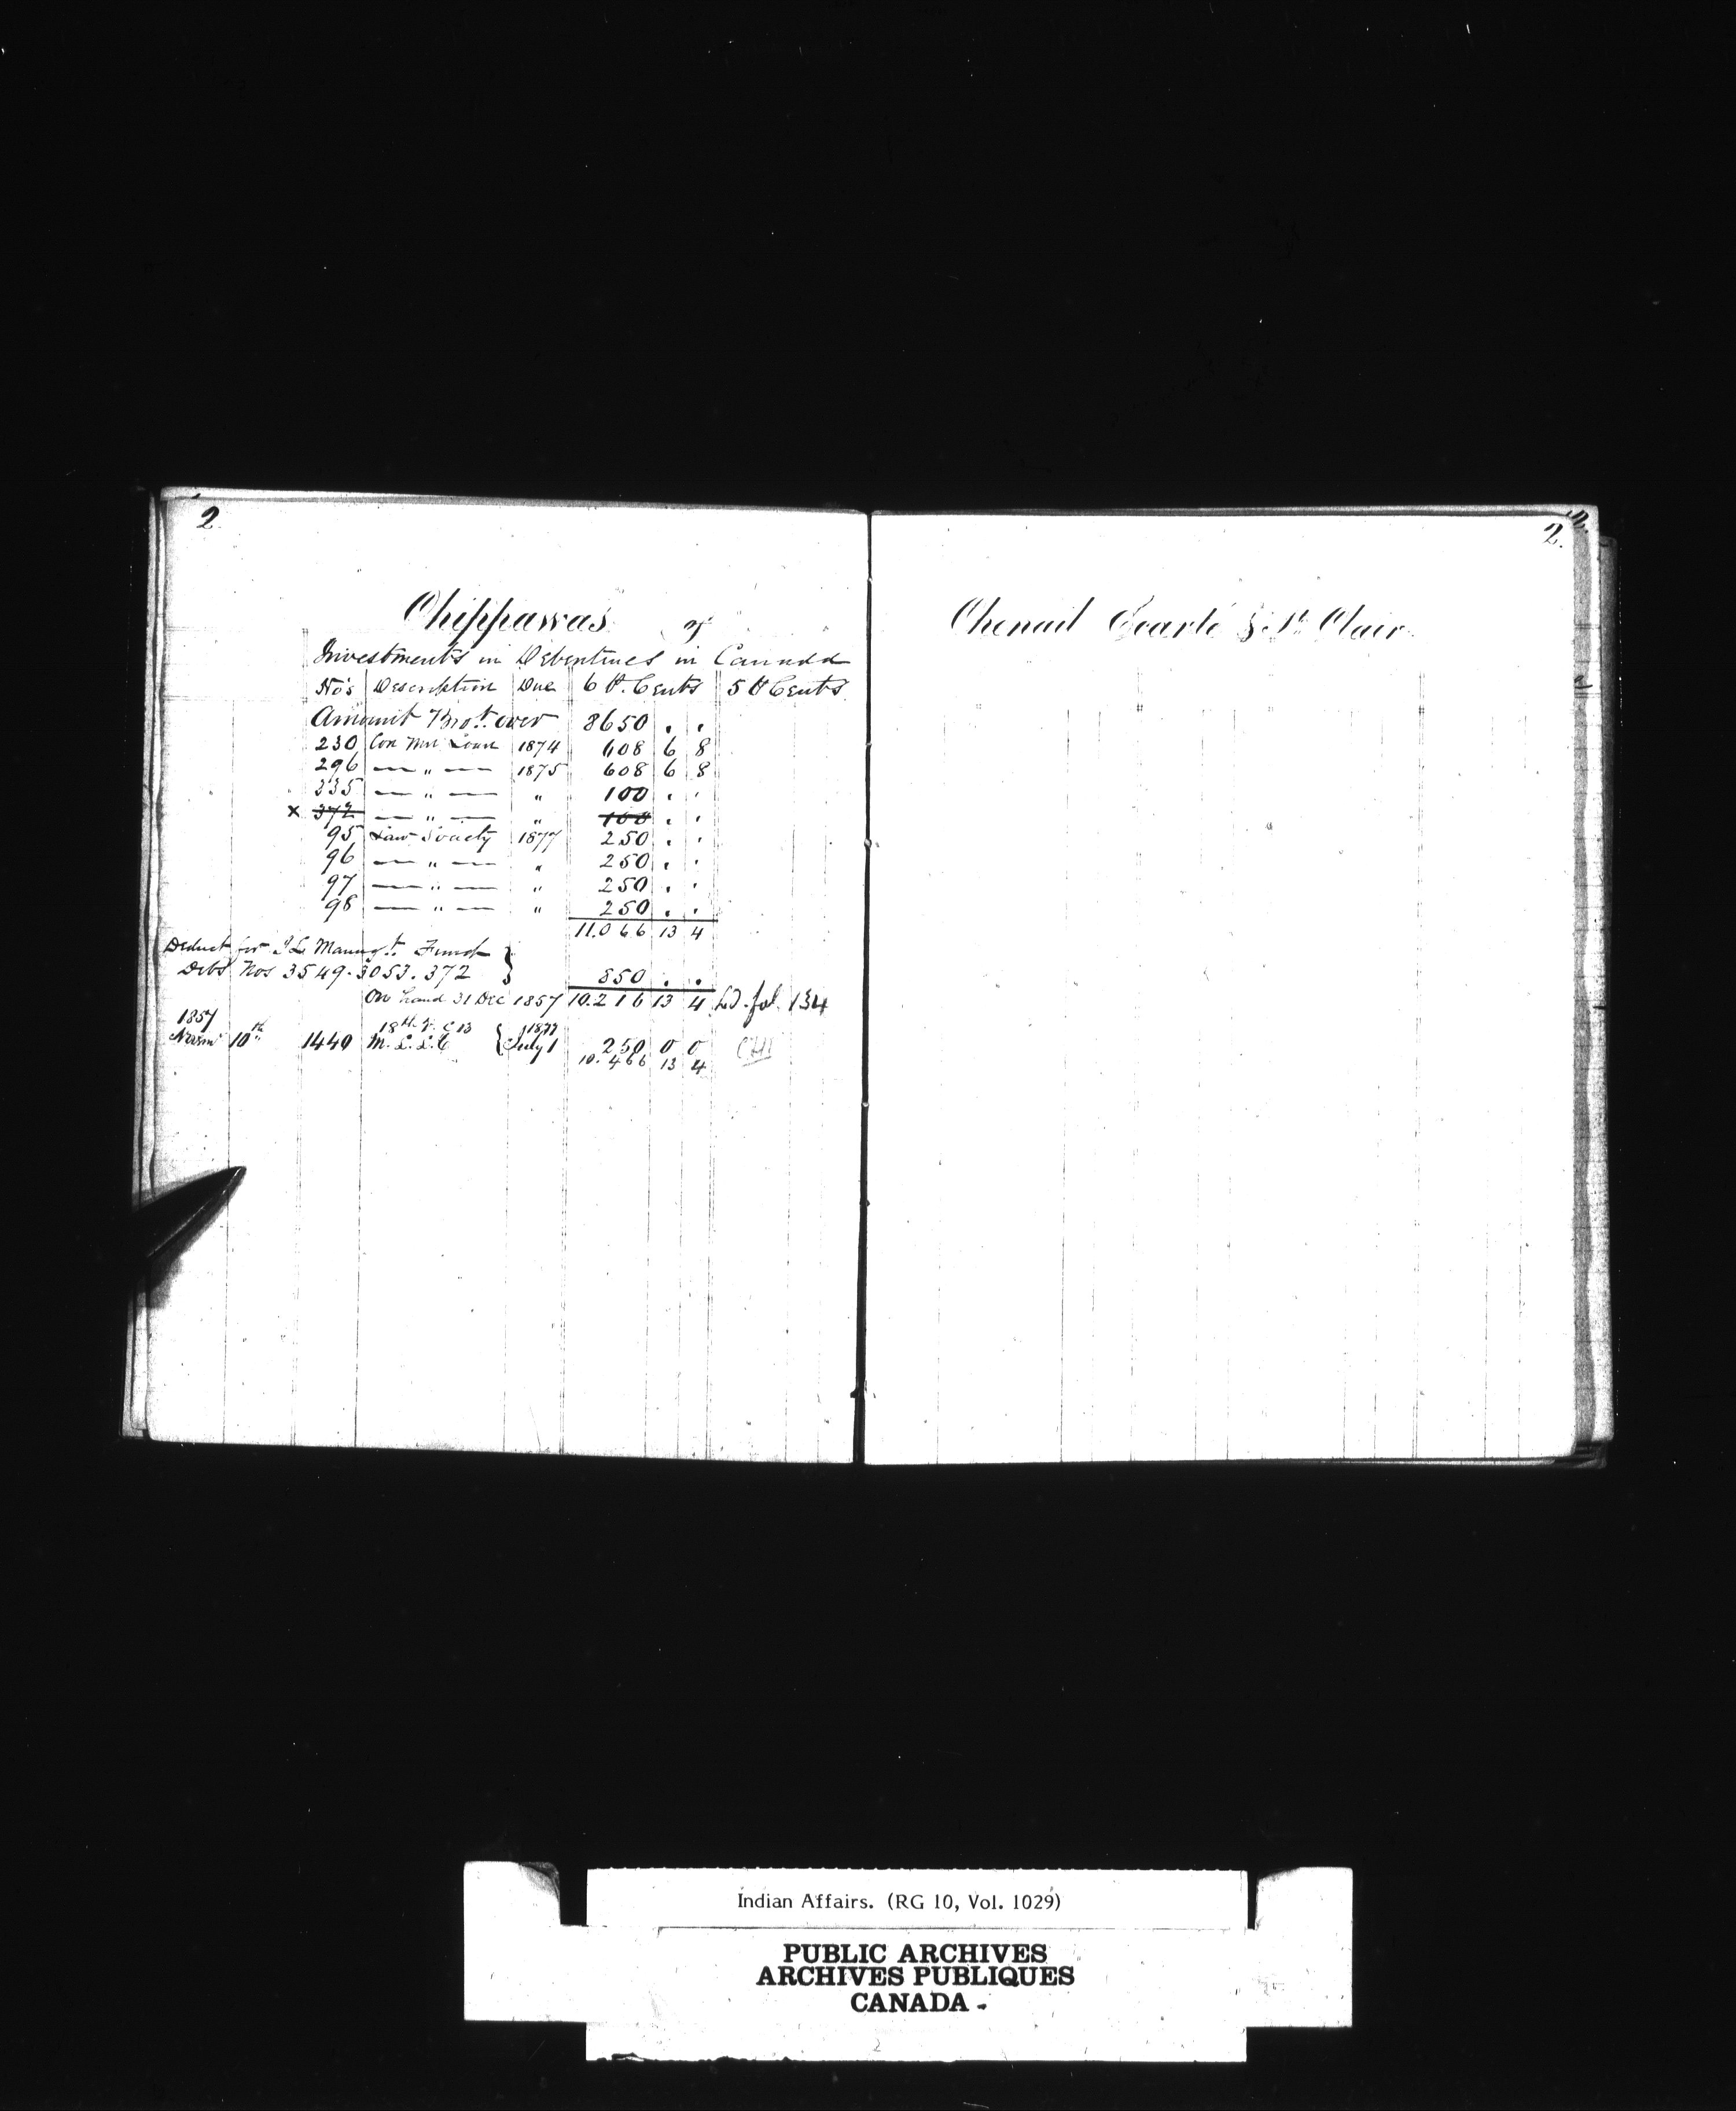 2.
Chippawas of
Investments in Debentures in Canada
No's Description Due 6 P. Cents 5 P Cents
Amount Bro.t over 8650 . .
230 Con Mun Loan 1874 608 6 8
296 — " — 1875 608 6 8
335 — " — " 100 . .
x 372 — " — " 100 . .
95 Law Society 1877 250 . .
96 — " — " 250 . .
97 — " — " 250 . .
98 — " — " 250 . .
11.066 13 4
Deduct for I L Manag.t Fund }
Debs Nos 3549. 3053. 372 850 . .
On hand 31 Dec 1857 10.216 13 4 Ld. fol. 134
1857 1877
Novem 10th 1440 M. L. L. C { July 1 250 0 0
10.466 13 4
2.
2.
Chenail Ecarté & St. Clair
Indian Affairs. (RG 10, Vol. 1029)
PUBLIC ARCHIVES
ARCHIVES PUBLIQUES
CANADA
2